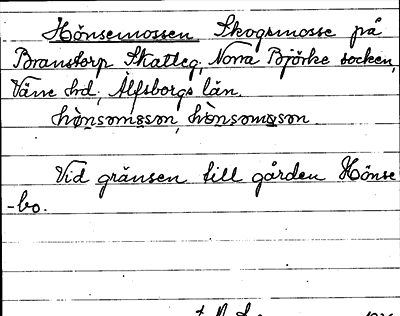 Hönsemossen Skogsmosse på
Branstorp Skatteg, Norra Björke socken,
Väne hd, Älfsborgs län.
hönsomssən, hönsomosən
Vid gränsen till gården Hönse
-bo.